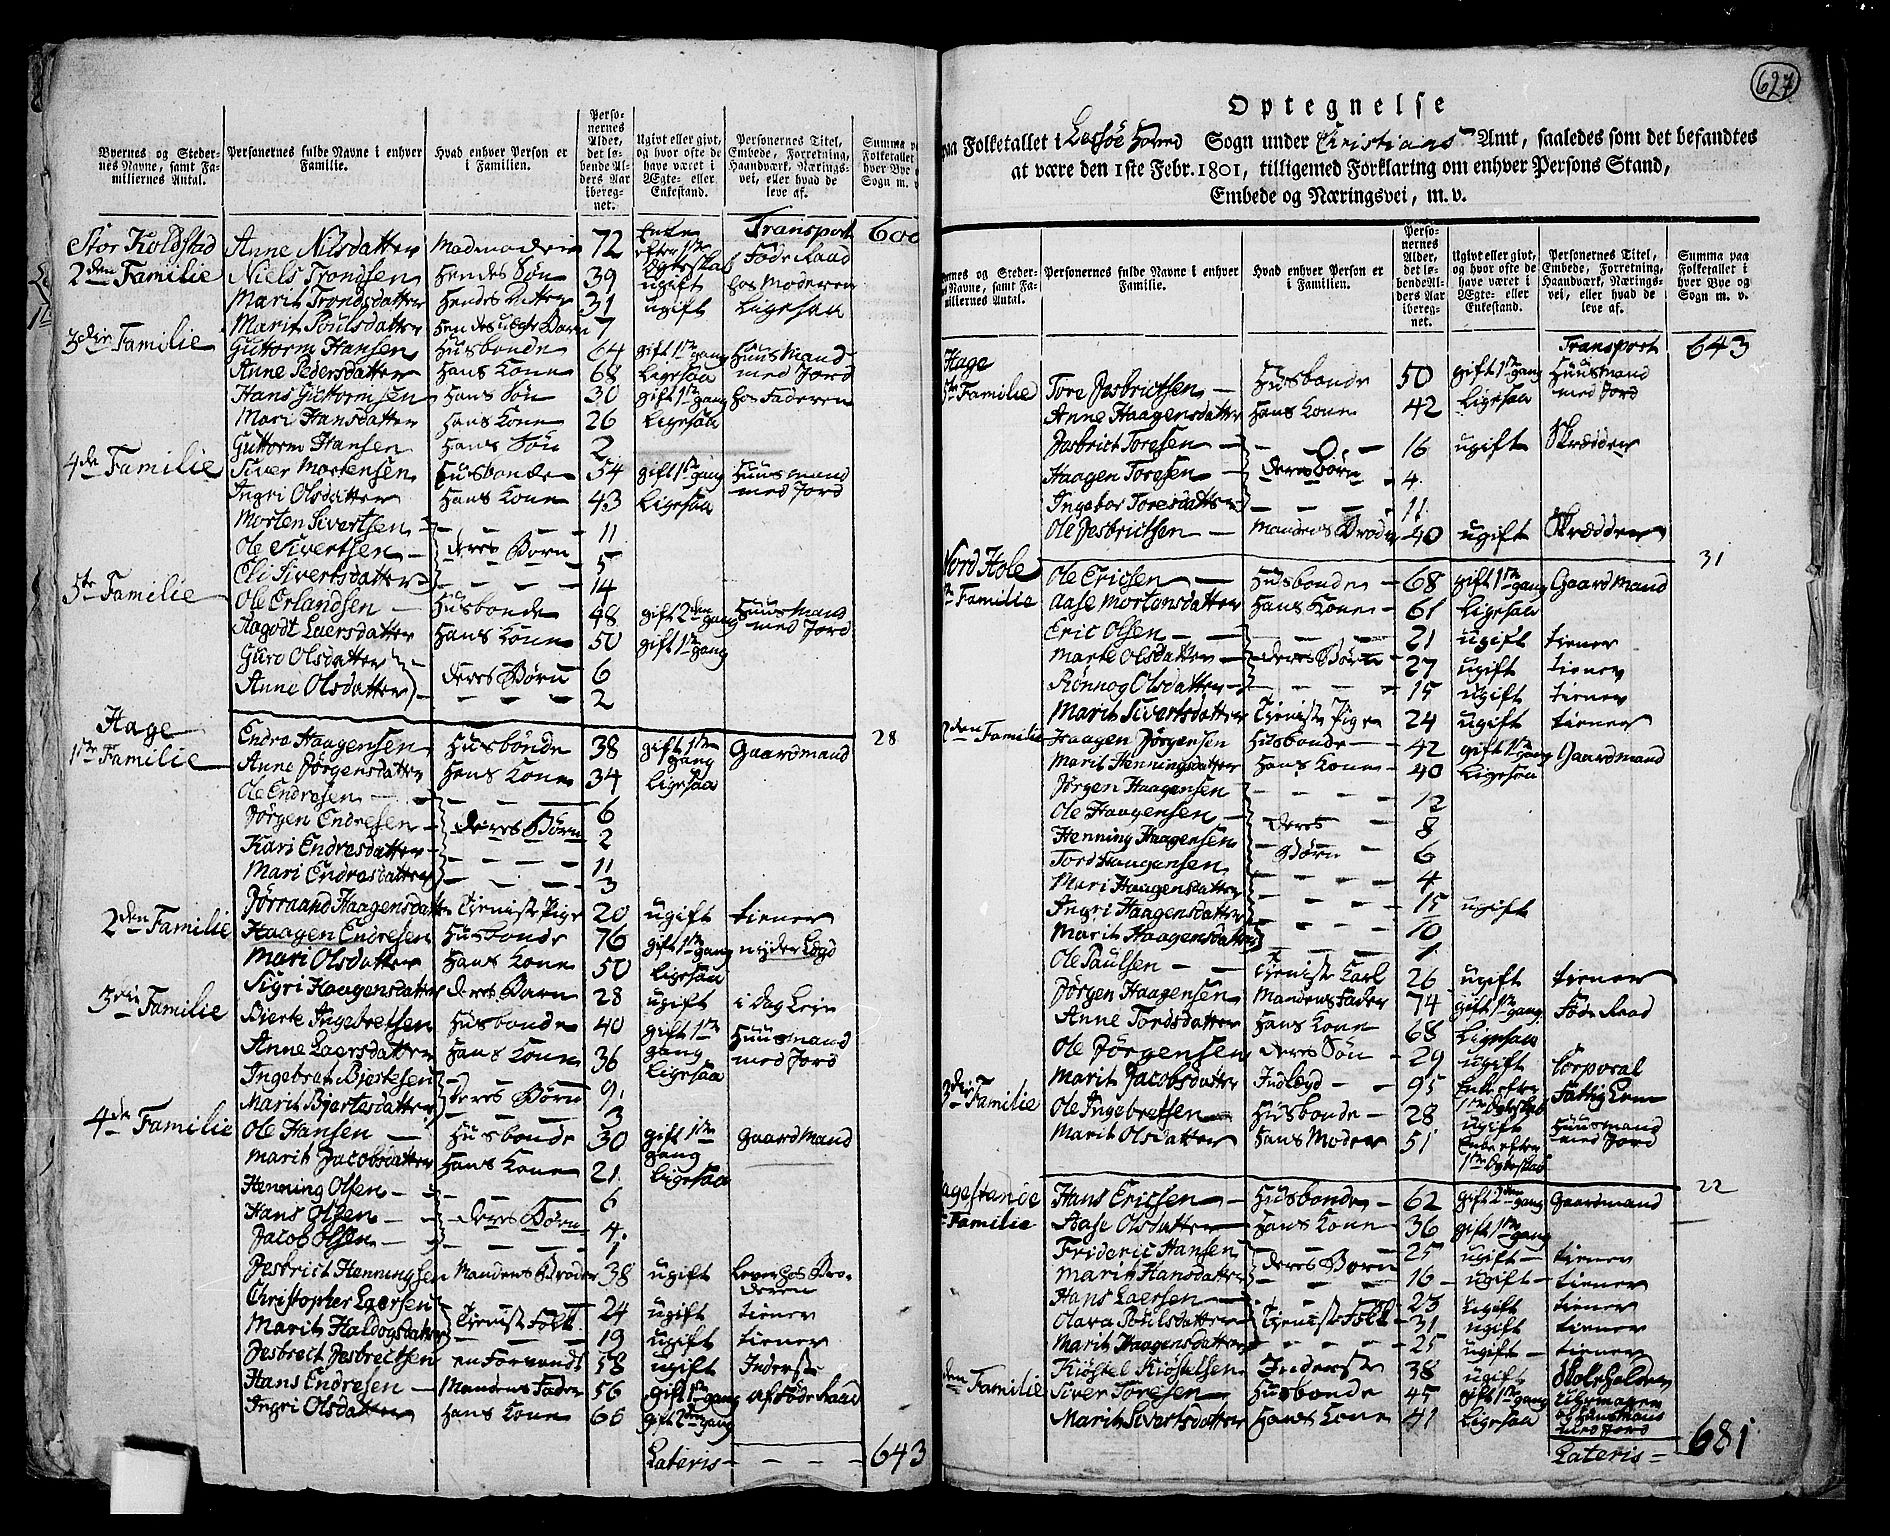 Byernes og Steder-
nes Navne, samt Fa-
miliernes Antal.
Personernes fulde Navne i enhver
Familie.
Hvad enhver Person er
i Familien.
Perso-
nernes
Alder,
det lø-
bende Al-
ders Aar
ibereg-
net.
Ugivt eller givt,
og hvor ofte de
have været i
Ægte- eller
Enkestand.
Personernes Titel,
Embede, Forretning,
Haandværk, Nærings-
vei, eller hvad de
leve af.
Summa
Folketallet
hver Bye
Sogn m. v.
Transport 600
Stor Koldstad Anne Nilsdatter Madmoder 72 Enke efter 1ste Egteskab Føde Raad
2den Familie Niels Trondsen Hendes Søn 39 ugift hos Moderen
Marit Trondsdatter Hendes Datter 31 ugift Ligesaa
Marit Poulsdatter Hendes uEgte Barn 7
3die Familie Guttorm Hansen Husbonde 64 gift 1ste gang Huusmand med Jord
Anne Pedersdatter Hans Kone 68 Ligesaa
Hans Guttormsen Hans Søn 30 gift 1ste gang hos Faderen
Mari Hansdatter Hans Kone 26 Ligesaa
Guttorm Hansen Hans Søn 2
4de Familie Siver Mortensen Husbonde 54 gift 1ste gang Huusmand med Jord
Ingri Olsdatter Hans Kone 43 Ligesaa
Morten Sivertsen 11
Ole Sivertsen deres Børn 5
Eli Sivertsdatter 14
5te Familie Ole Erlandsen Husbonde 48 gift 2den gang Huusmand med Jord
Aagodt Laersdatter Hans Kone 50 gift 1ste gang
Guro Olsdatter deres Børn 6
Anne Olsdatter 2
Hage 28
1ste Familie Endre Haagensen Husbonde 38 gift 1ste gang Gaardmand
Anne Jørgensdatter Hans Kone 34 Ligesaa
Ole Endresen 6
Jørgen Endresen deres Børn 2
Kari Endresdatter 11
Mari Endresdatter 3
Jørraand Haagensdatter Tieniste Pige 20 ugift tiener
2den Familie Haagen Endresen Husbonde 76 gift 1ste gang nyder Lægd
Mari Olsdatter Hans Kone 50 Ligesaa
Sigri Haagensdatter deres Barn 28 ugift i dag Leie
3die Familie Bierte Ingebretsen Husbonde 40 gift 1ste gang Huusmand med Jord
Anne Laersdatter Hans Kone 36 Ligesaa
Ingebret Bjertesen deres Børn 9
Marit Bjertesdatter 3
4de Familie Ole Hansen Husbonde 30 gift 1ste gang Gaardmand
Marit Jacobsdatter Hans Kone 21 Ligesaa
Henning Olsen 6
Hans Olsen deres Børn 4
Jacob Olsen 1
Jesbrict Henningsen Mandens Broder 38 ugift Lever hos Broderen
Christopher Laersen Tieniste Folk 24 ugift tiener
Marit Haldogsdatter 19 ugift tiener
Jesbrect Jesbrectsen en Forvandt 58 ugift Inderste
Hans Endresen Mandens Fader 56 gift 1ste gang af føde Raad
Ingri Olsdatter Hans Kone 66 gift 2den gang
Lateris 643
627
Optegnelse
paa Folketallet i Lessøe Hoved Sogn under Christians Amt, saaledes som det befandtes
at være den 1ste Febr. 1801, tilligemed Forklaring om enhver Persons Stand,
Embede og Næringsvei, m. v.
Byernes og Steder-
nes Navne, samt Fa-
miliernes Antal.
Personernes fulde Navne i enhver
Familie.
Hvad enhver Person er
i Familien.
Perso-
nernes
Alder,
det lø-
bende Al-
ders Aar
ibereg-
net.
Ugivt eller givt,
og hvor ofte de
have været i
Ægte- eller
Enkestand.
Personernes Titel,
Embede, Forretning,
Haandværk, Nærings-
vei, eller hvad de
leve af.
Summa paa
Folketallet i
hver Bye og
Sogn m. v.
Transport 643
Hage
5te Familie Tore Jesbrictsen Husbonde 50 gift 1ste gang Huusmand med Jord
Anne Haagensdatter Hans Kone 42 Ligesaa
Jesbrict Toresen 16 ugift Skrædder
Haagen Toresen deres Børn 4
Ingebor Toresdatter 11
Ole Jesbrictsen Mandens Broder 40 ugift Skrædder
Nord Hole 31
1ste Familie Ole Ericsen Husbonde 68 gift 1ste gang Gaardmand
Aase Mortensdatter Hans Kone 61 Ligesaa
Eric Olsen 21 ugift tiener
Marte Olsdatter deres Børn 27 ugift tiener
Rønnog Olsdatter 15 ugift tiener
Marit Sivertsdatter Tieniste Pige 24 ugift tiener
2den Familie Haagen Jørgensen Husbonde 42 gift 1ste gang Gaardmand
Marit Henningsdatter Hans Kone 40 Ligesaa
Jørgen Haagensen 12
Ole Haagensen deres 8
Henning Haagensen Børn 6
Tord Haagensen 4
Mari Haagensdatter 15 ugift
Ingri Haagensdatter 10
Marit Haagensdatter 1
Ole Paulsen Tieniste Karl 26 ugift tiener
Jørgen Haagensen Mandens Fader 74 gift 1ste gang Føde Raad
Anne Tordsdatter Hans Kone 68 Ligesaa
Ole Jørgensen deres Søn 29 ugift Corporal
Marit Jacobsdatter Indlægd 95 Enke efter 1ste Egteskab Fattig Lem
3die Familie Ole Ingebretsen Husbonde 28 ugift Huusmand med Jord
Marit Olsdatter Hans Moder 51 Enke efter 1ste Egteskab
Hagestande 22
1ste Familie Hans Ericsen Husbonde 62 gift 2den gang Gaardmand
Aase Olsdatter Hans Kone 36 gift 1ste gang
Frideric Hansen deres Børn 25 ugift tiener
Marit Hansdatter 16 ugift tiener
Hans Laersen 23 ugift tiener
Olava Poulsdatter Tieniste Folk 31 ugift tiener
Marit Haagensdatter 25 ugift tiener
Kiøstel Kiøstelsen Inderste 38 ugift Skoleholder
2den Familie Siver Toresen Husbonde 45 gift 1ste gang Uhrmager og Huusmand med Jord
Marit Sivertsdatter Hans Kone 41 Ligesaa
Lateris 681